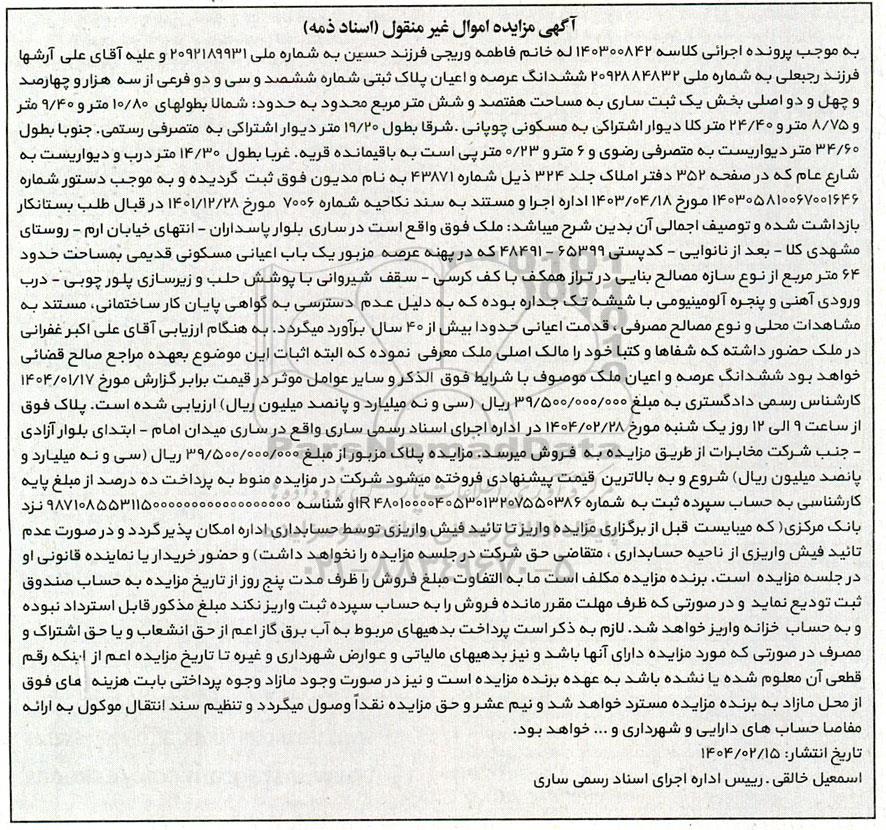 آگهی مزایده اموال غیر منقول (اسناد ذمه)
به موجب پرونده اجرائی کلاسه ۱۴۰۳۰۰۸۴۲ له خانم فاطمه وریجی فرزند حسین به شماره ملی ۲۰۹۲۱۸۹۹۳۱ و علیه آقای علی آرشها
فرزند رجبعلی به شماره ملی ۲۰۹۲۸۸۴۸۳۲ ششدانگ عرصه و اعیان پلاک ثبتی شماره ششصد و سی و دو فرعی از سه هزار و چهارصد
و چهل و دو اصلی بخش یک ثبت ساری به مساحت هفتصد و شش متر مربع محدود به حدود: شمالا بطولهای ۱۰/۸۰ متر و ۹/۴۰ متر
و ۸/۷۵ متر و ۲۴/۴۰ متر کلا دیوار اشتراکی به مسکونی چوپانی .شرقا بطول ۱۹/۲۰ متر دیوار اشتراکی به متصرفی رستمی. جنوبا بطول
۳۴/۶۰ متر دیواریست به متصرفی رضوی و ۶ متر و ۰/۲۳ متر پی است به باقیمانده قریه. غربا بطول ۱۴/۳۰ متر درب و دیواریست به
شارع عام که در صفحه ۳۵۲ دفتر املاک جلد ۳۲۴ ذیل شماره ۴۳۸۷۱ به نام مدیون فوق ثبت گردیده و به موجب دستور شماره
۱۴۰۳۰۵۸۱۰۰۶۷۰۰۱۶۴۶ مورخ ۱۴۰۳/۰۴/۱۸ اداره اجرا و مستند به سند نکاحیه شماره ۷۰۰۶ مورخ ۱۴۰۱/۱۲/۲۸ در قبال طلب بستانکار
بازداشت شده و توصیف اجمالی آن بدین شرح میباشد: ملک فوق واقع است در ساری بلوار پاسداران - انتهای خیابان ارم - روستای
مشهدی کلا - بعد از نانوایی - کدپستی ۶۵۳۹۹ - ۴۸۴۹۱ که در پهنه عرصه مزبور یک باب اعیانی مسکونی قدیمی بمساحت حدود
۶۴ متر مربع از نوع سازه مصالح بنایی در تراز همکف با کف کرسی - سقف شیروانی با پوشش حلب و زیرسازی پلور چوبی - درب
ورودی آهنی و پنجره آلومینیومی با شیشه تک جداره بوده که به دلیل عدم دسترسی به گواهی پایان کار ساختمانی، مستند به
مشاهدات محلی و نوع مصالح مصرفی ، قدمت اعیانی حدودا بیش از ۴۰ سال برآورد میگردد. به هنگام ارزیابی آقای علی اکبر غفرانی
در ملک حضور داشته که شفاها و کتبا خود را مالک اصلی ملک معرفی نموده که البته اثبات این موضوع بعهده مراجع صالح قضائی
خواهد بود ششدانگ عرصه و اعیان ملک موصوف با شرایط فوق الذکر و سایر عوامل موثر در قیمت برابر گزارش مورخ ۱۴۰۴/۰۱/۱۷
کارشناس رسمی دادگستری به مبلغ ۳۹/۵۰۰/۰۰۰/۰۰۰ ریال (سی و نه میلیارد و پانصد میلیون ریال) ارزیابی شده است. پلاک فوق
از ساعت ۹ الی ۱۲ روز یک شنبه مورخ ۱۴۰۴/۰۲/۲۸ در اداره اجرای اسناد رسمی ساری واقع در ساری میدان امام - ابتدای بلوار آزادی
- جنب شرکت مخابرات از طریق مزایده به فروش میرسد. مزایده پلاک مزبور از مبلغ ۳۹/۵۰۰/۰۰۰/۰۰۰ ریال (سی و نه میلیارد و
پانصد میلیون ریال) شروع و به بالاترین قیمت پیشنهادی فروخته میشود شرکت در مزایده منوط به پرداخت ده درصد از مبلغ پایه
کارشناسی به حساب سپرده ثبت به شماره IR۴۸۰۱۰۰۰۰۴۰۵۳۰۱۳۲۰۷۵۵۰۳۸۶و شناسه ۹۸۷۱۰۸۵۵۳۱۱۵۰۰۰۰۰۰۰۰۰۰۰۰۰۰۰۰۰۰ نزد
بانک مرکزی( که میبایست قبل از برگزاری مزایده واریز تا تائید فیش واریزی توسط حسابداری اداره امکان پذیر گردد و در صورت عدم
تائید فیش واریزی از ناحیه حسابداری ، متقاضی حق شرکت در جلسه مزایده را نخواهد داشت) و حضور خریدار یا نماینده قانونی او
در جلسه مزایده است. برنده مزایده مکلف است ما به التفاوت مبلغ فروش را ظرف مدت پنج روز از تاریخ مزایده به حساب صندوق
ثبت تودیع نماید و در صورتی که ظرف مهلت مقرر مانده فروش را به حساب سپرده ثبت واریز نکند مبلغ مذکور قابل استرداد نبوده
و به حساب خزانه واریز خواهد شد. لازم به ذکر است پرداخت بدهیهای مربوط به آب برق گاز اعم از حق انشعاب و یا حق اشتراک و
مصرف در صورتی که مورد مزایده دارای آنها باشد و نیز بدهیهای مالیاتی و عوارض شهرداری و غیره تا تاریخ مزایده اعم از اینکه رقم
قطعی آن معلوم شده یا نشده باشد به عهده برنده مزایده است و نیز در صورت وجود مازاد وجوه پرداختی بابت هزینه های فوق
از محل مازاد به برنده مزایده مسترد خواهد شد و نیم عشر و حق مزایده نقداً وصول میگردد و تنظیم سند انتقال موکول به ارائه
مفاصا حساب های دارایی و شهرداری و ... خواهد بود.
تاریخ انتشار: ۱۴۰۴/۰۲/۱۵
اسمعیل خالقی . رییس اداره اجرای اسناد رسمی ساری
ParsNamadData
۰۲۱-۸۸۳۴۹۶۷۰-۵